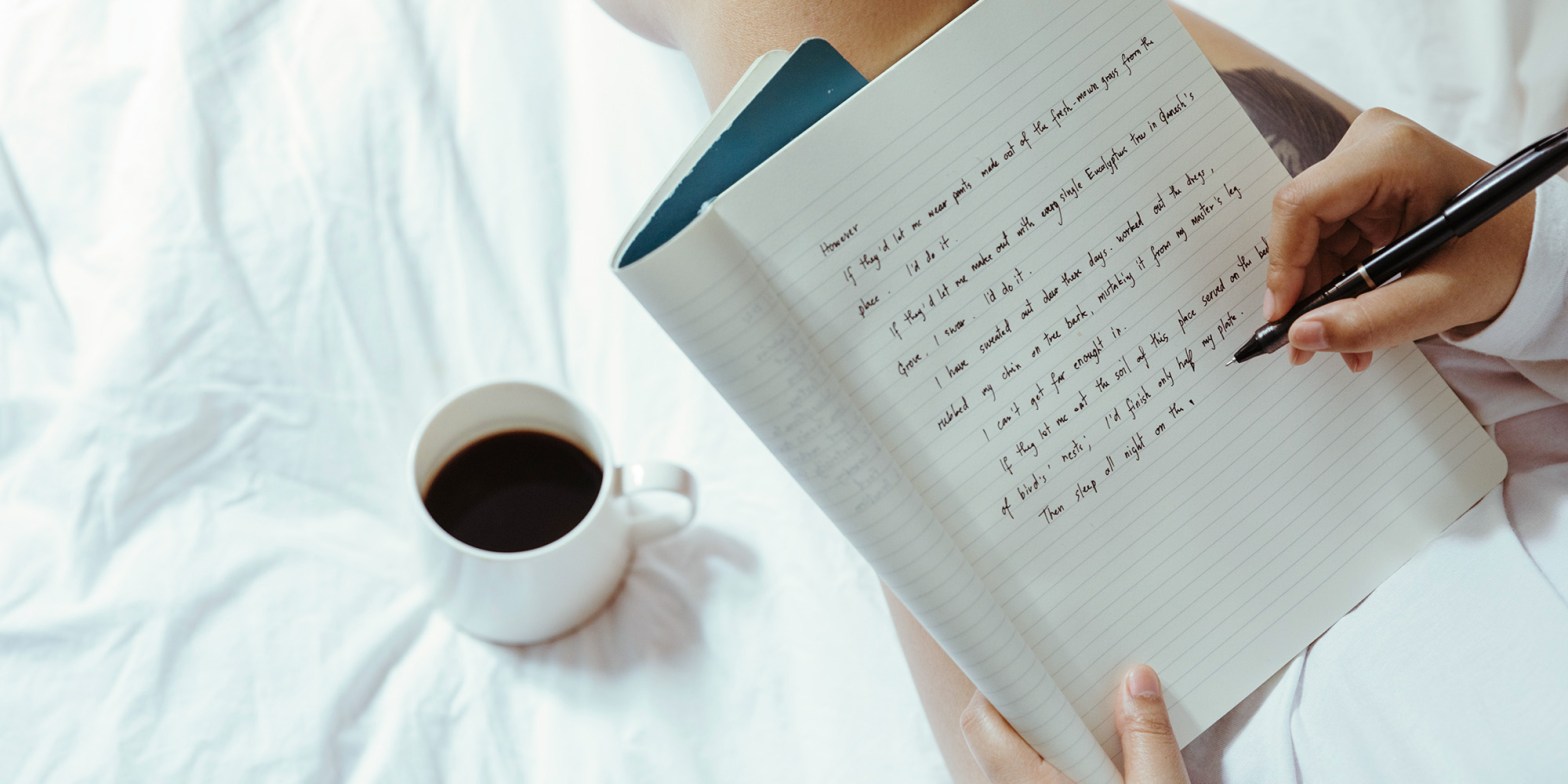 However
If they'd let me wear pants made out of the fresh-mown grass from the
place. I'd do it.
If they'd let me make out with every single Eucalyptus tree in Ganesh's
Grove. I swear. I'd do it.
I have sweated out dew these days. worked out the dregs,
rubbed my chin on tree bark, mistaking it from my master's leg.
I can't get far enough in.
If they let me eat the soil of this place served on the bed
of bird's' nests; I'd finish only half my plate.
Then sleep all night on the